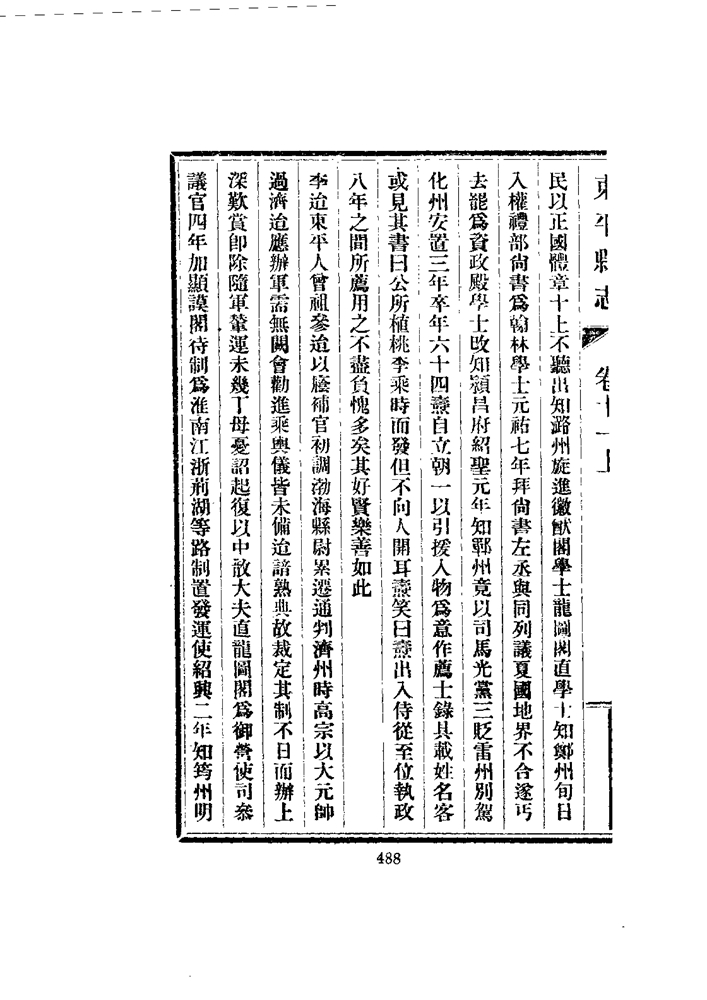 東平縣志 卷十一上
民以正國體章十上不聽出知潞州旋進徽猷閣學士龍圖閣直學士知鄭州旬日
入權禮部尚書爲翰林學士元祐七年拜尚書左丞與同列議夏國地界不合遂丐
去罷爲資政殿學士改知潁昌府紹聖元年知鄆州竟以司馬光黨三貶雷州別駕
化州安置三年卒年六十四燾自立朝一以引援人物爲意作薦士錄具載姓名客
或見其書曰公所植桃李乘時而發但不向人開耳燾笑曰燾出入侍從至位執政
八年之間所薦用之不盡負愧多矣其好賢樂善如此
李迨東平人曾祖參迨以廕補官初調渤海縣尉累遷通判濟州時高宗以大元帥
過濟迨應辦軍需無闕會勸進乘輿儀皆未備迨諳熟典故裁定其制不日而辦上
深歎賞即除隨軍輦運未幾丁母憂詔起復以中散大夫直龍圖閣爲御營使司參
議官四年加顯謨閣待制爲淮南江浙荊湖等路制置發運使紹興二年知筠州明
488